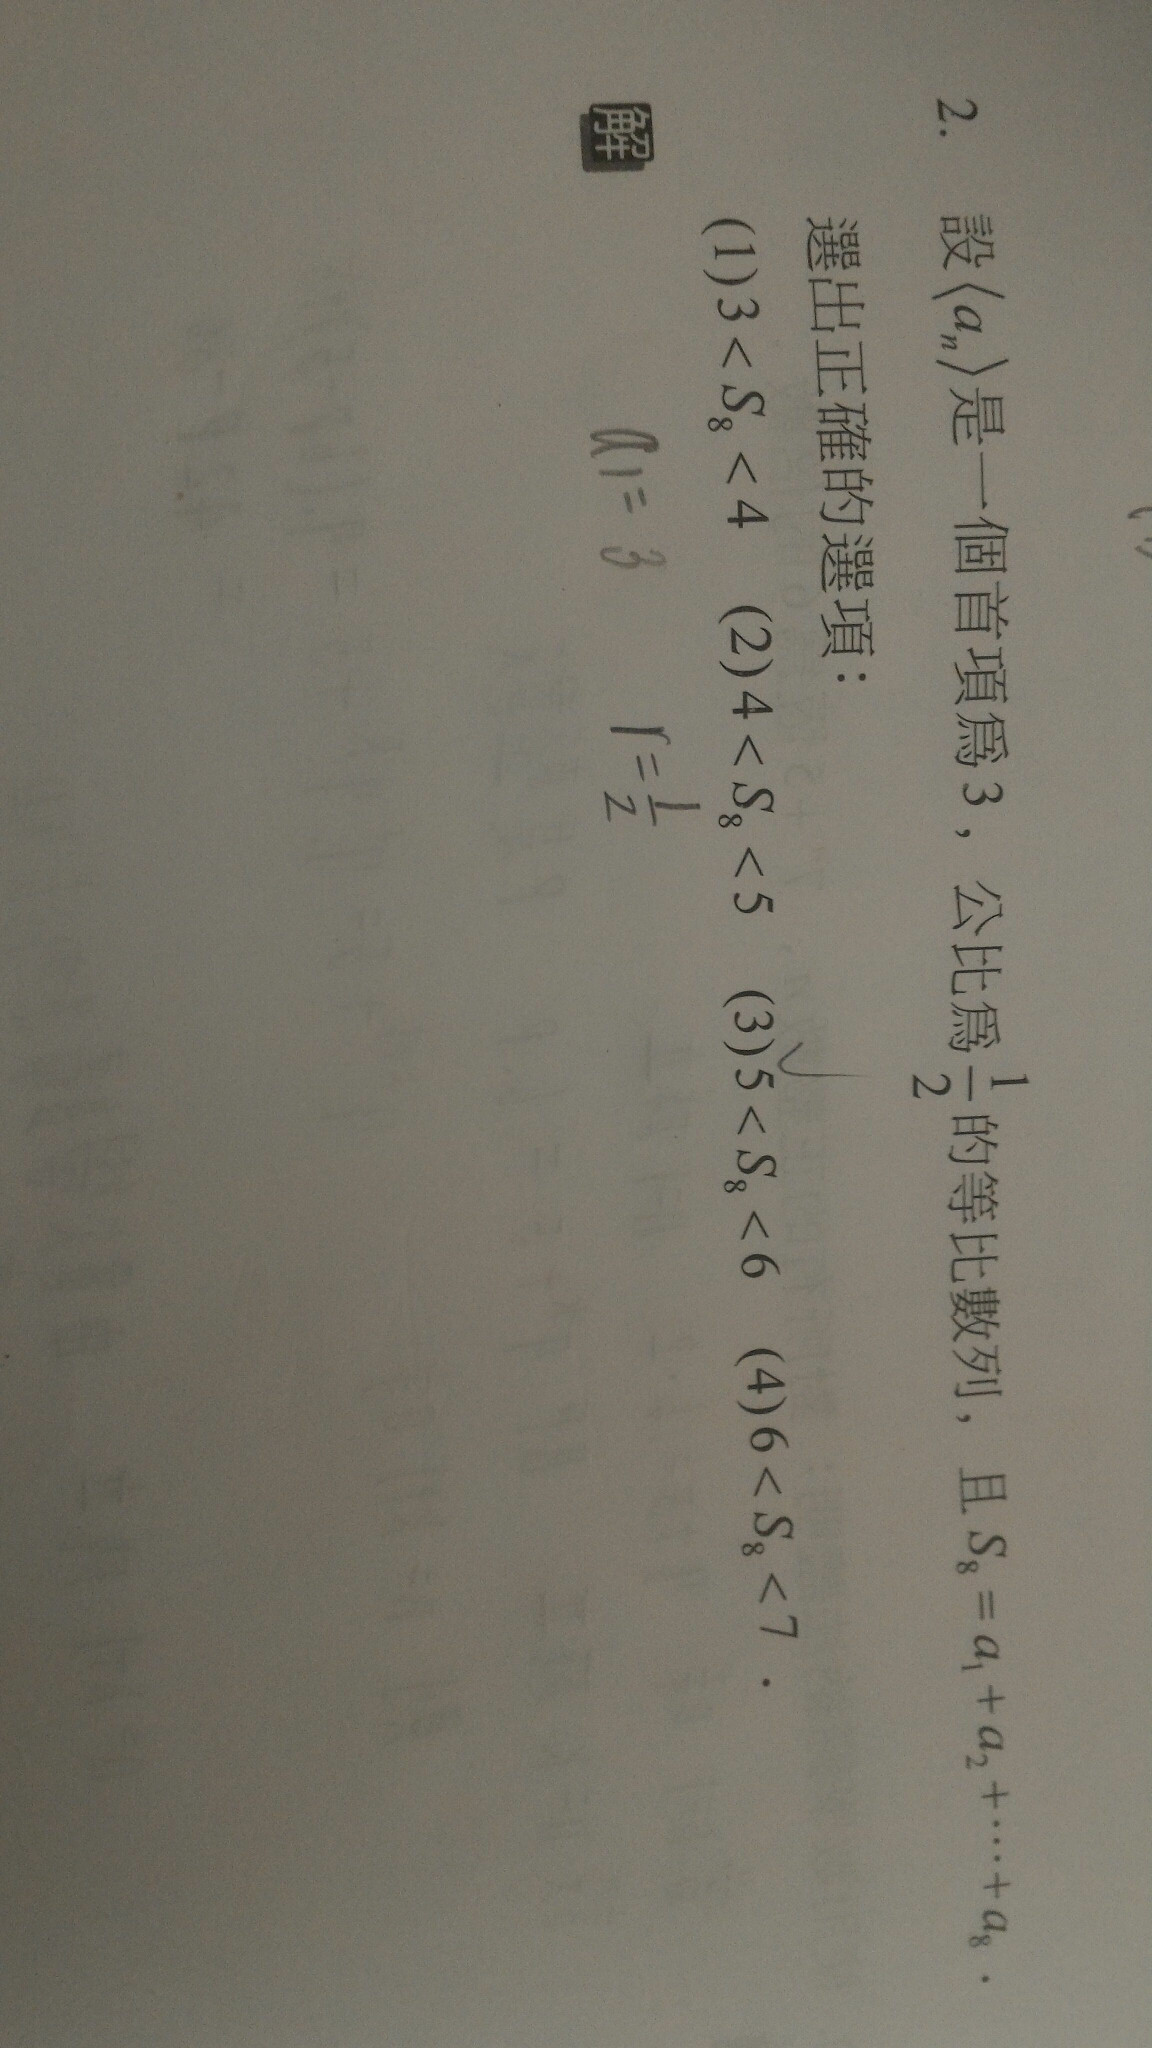 2. 設⟨aₙ⟩是一個首項為3，公比為1/2的等比數列，且S₈=a₁+a₂+⋯+a₈．
選出正確的選項：
(1)3<S₈<4 (2)4<S₈<5 (3)5<S₈<6 (4)6<S₈<7．
解
a₁=3 r=1/2